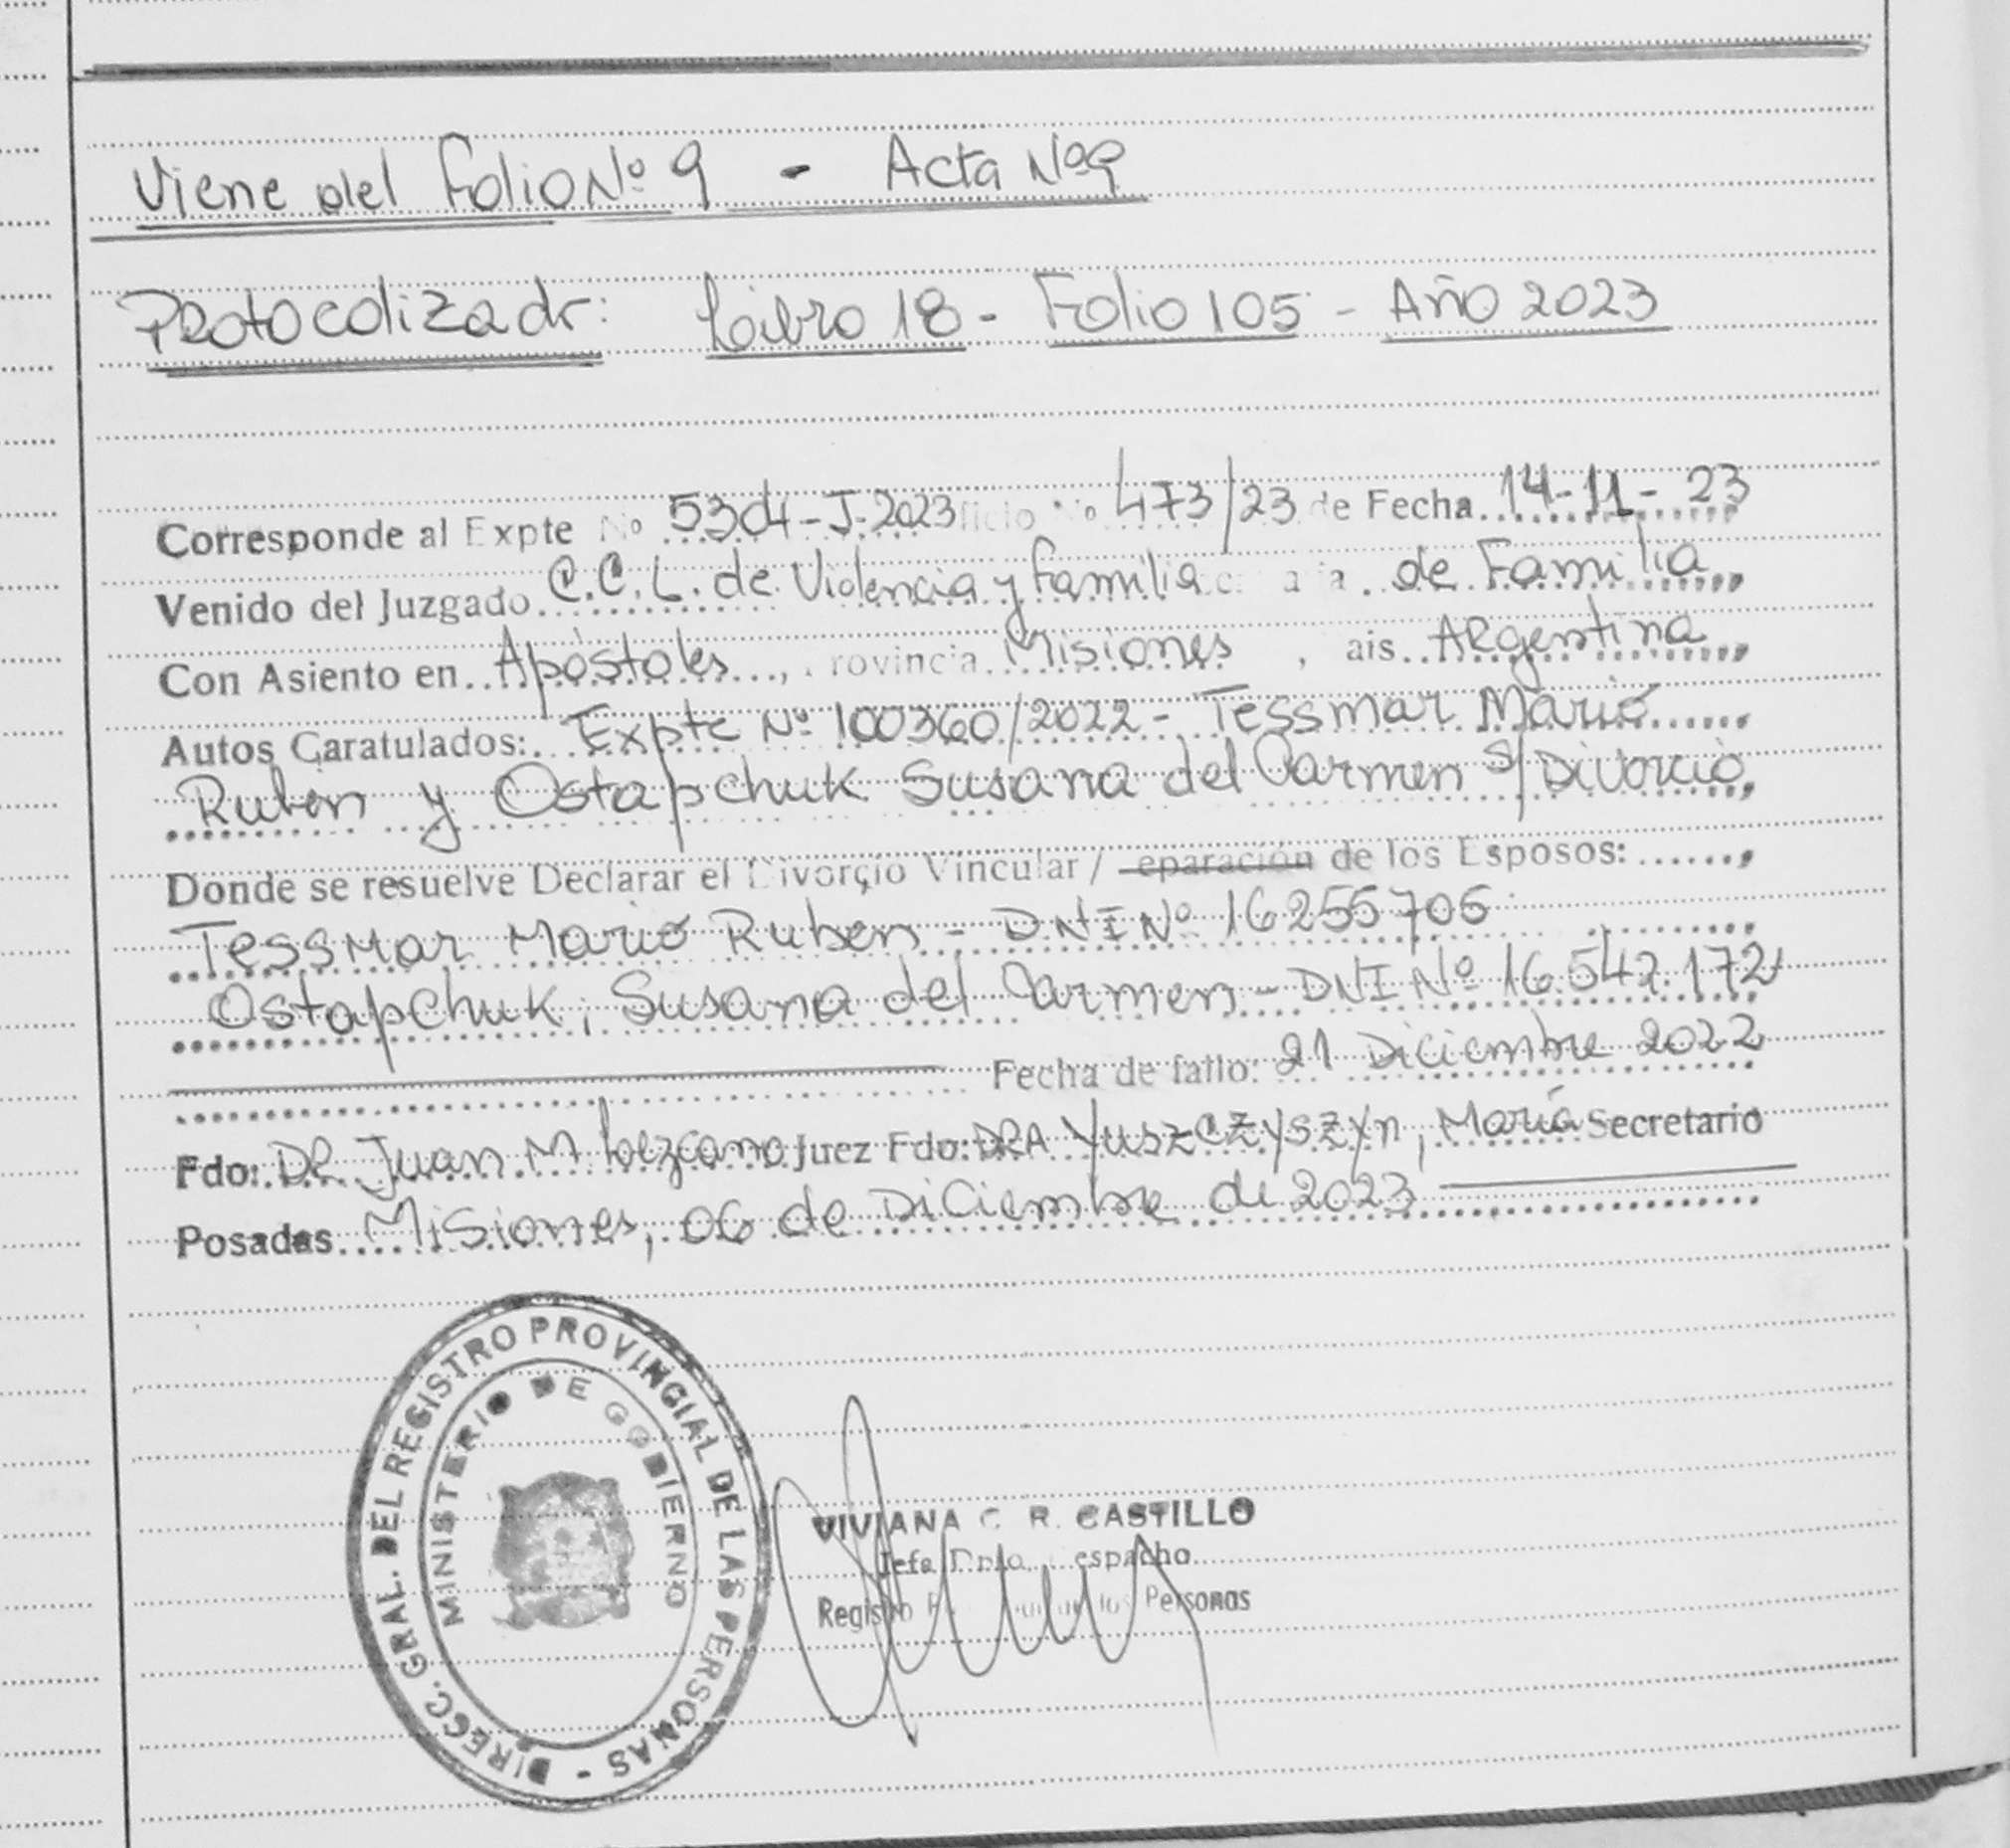 Viene del Folio Nº 9 - Acta Nº 9
Protocolizado: Libro 18 - Folio 105 - Año 2023
Corresponde al Expte Nº 5304-J-2023 ficio Nº 473/23 de Fecha 14-11-23
Venido del Juzgado C.C.L. de Violencia y Familia de Familia
Con Asiento en Apóstoles, rovincia Misiones, ais Argentina
Autos Caratulados: Expte Nº 100360/2022 - Tessmar Mario
Ruben y Ostapchuk Susana del Carmen S/ Divorcio
Donde se resuelve Declarar el Divorcio Vincular / eparación de los Esposos:
Tessmar Mario Ruben - DNI Nº 16255706
Ostapchuk, Susana del Carmen - DNI Nº 16.542.172
Fecha de fallo: 21 Diciembre 2022
Fdo: DR Juan M Lezcano Juez Fdo: DRA Yuszczyszyn, María Secretario
Posadas Misiones, 06 de Diciembre de 2023
DIRECC. GRAL. DEL REGISTRO PROVINCIAL DE LAS PERSONAS -
MINISTERIO DE GOBIERNO
VIVIANA C. R. CASTILLO
Jefa Dpto. espacho
Registro los Personas